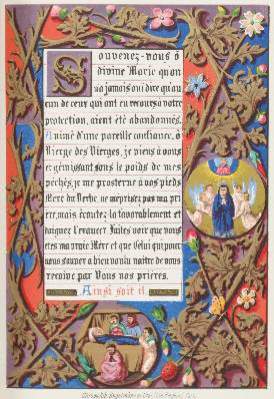 Souvenez-vous ô
divine Marie qu'on
n'a jamais oui dire qu'au
cun de ceux qui ont eu recours à votre
protection, aient été abandonnés.
Animé d'une pareille confiance, ô
Vierge des Vierges, je viens à vous
et gémissant sous le poids de mes
péchés, je me prosterne à vos pieds
Mère du Verbe ne méprisez pas ma pri
ère, mais écoutez la favorablement et
daignez l'exaucer. Faites voir que vous
êtes ma vraie Mère et que Celui qui pour
nous sauver a bien voulu naître de vous
reçoive par Vous nos prières.
Ainsi soit il.